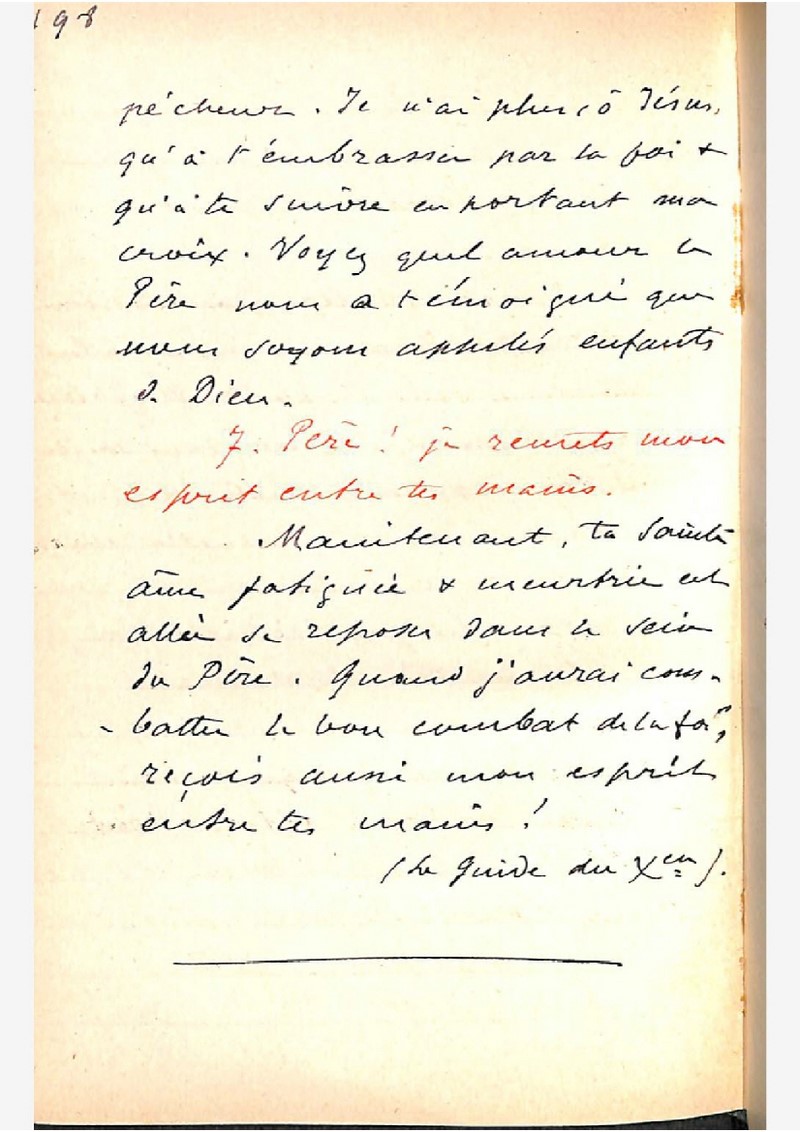 198
pécheur. Je n'ai plus, ô Jésus,
qu'à t'embrasser par la foi &
qu'à te suivre en portant ma
croix. Voyez quel amour le
Père nous a témoigné que
nous soyons appelés enfants
de Dieu.
7. Père! je remets mon
esprit entre tes mains.
Maintenant, ta sainte
âme fatiguée & meurtrie est
allée se reposer dans le sein
du Père. Quand j'aurai com-
-battu le bon combat de la foi,
reçois aussi mon esprit
entre tes mains!
(Le Guide du Xen).